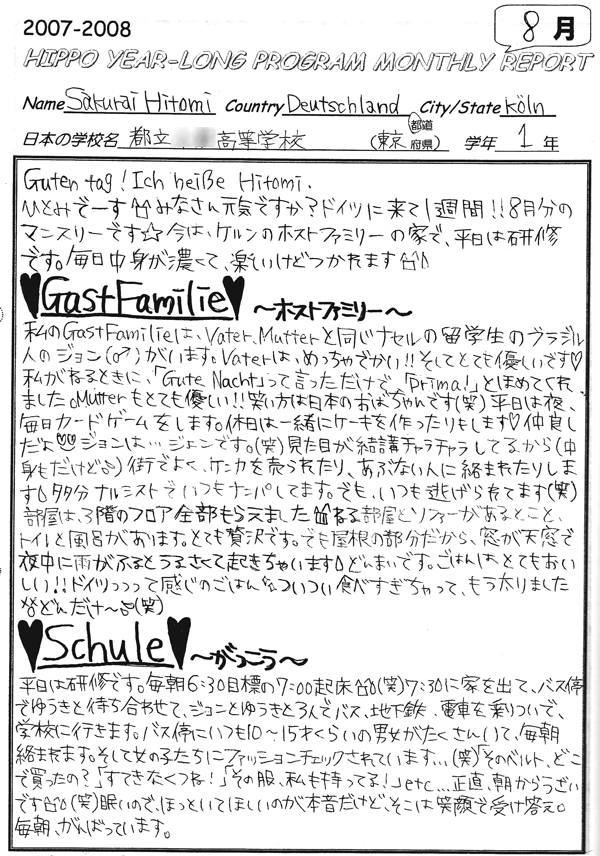 2007-2008
8月
HIPPO YEAR-LONG PROGRAM MONTHLY REPORT
Name Sakurai Hitomi Country Deutschland City/State Köln
日本の学校名 都立 高等学校 (東京 都道府県) 学年 1 年
Guten tag! Ich heiße Hitomi.
ひとみでーす みなさん元気ですか?ドイツに来て1週間!!8月分の
マンスリーです☆今は、ケルンのホストファミリーの家で、平日は研修
です。毎日中身が濃くて、楽しいけどつかれます
♥GastFamilie♥ ~ホストファミリー~
私のGastFamilieは、Vater、Mutterと同じナセルの留学生のブラジル
人のジョン(♂)がいます。Vaterは、めっちゃでかい!!そしてとても優しいです♡
私がねるときに、「Gute Nacht」って言っただけで、「Prima!」とほめてくれ
ました。Mutterもとても優しい!!笑い方は日本のおばちゃんです(笑)平日は夜、
毎日カードゲームをします。休日は一緒にケーキを作ったりもします♡仲良し
だよ ジョンは…ジョンです。(笑)見た目が結講チャラチャラしてるから(中
身もだけど)街でよく、ケンカを売られたり、あぶない人に絡まれたりしま
す 多分ナルシストでいつもナンパしてます。でも、いつも逃げられてます(笑)
部屋は、3階のフロア全部もらえました ねる部屋とソファーがあるとこと、
トイレと風呂があります。とても贅沢です。でも屋根の部分だから、窓が天窓で
夜中に雨がふるとうるさくて起きちゃいます どんまいです。ごはんは、とてもおい
しい!!ドイツっっって感じのごはん ついつい食べすぎちゃって、もう太りました
どんだけ~(笑)
♥Schule♥ ~がっこう~
平日は研修です。毎朝6:30目標の7:00起床(笑)7:30に家を出て、バス停
でゆうきと待ち合わせて、ジョンとゆうきと3人でバス、地下鉄、電車を乗りついで、
学校に行きます。バス停にいつも10~15才くらいの男女がたくさんいて、毎朝
絡まれます。そして女の子たちにファッションチェックされています…(笑)「そのベルト、どこ
で買ったの?」「すてきなくつね!」「その服、私も持ってる!」etc...正直、朝からうざい
です(笑)眠いので、ほっといてほしいのが本音だけど、そこは笑顔で受け答え。
毎朝、がんばっています。